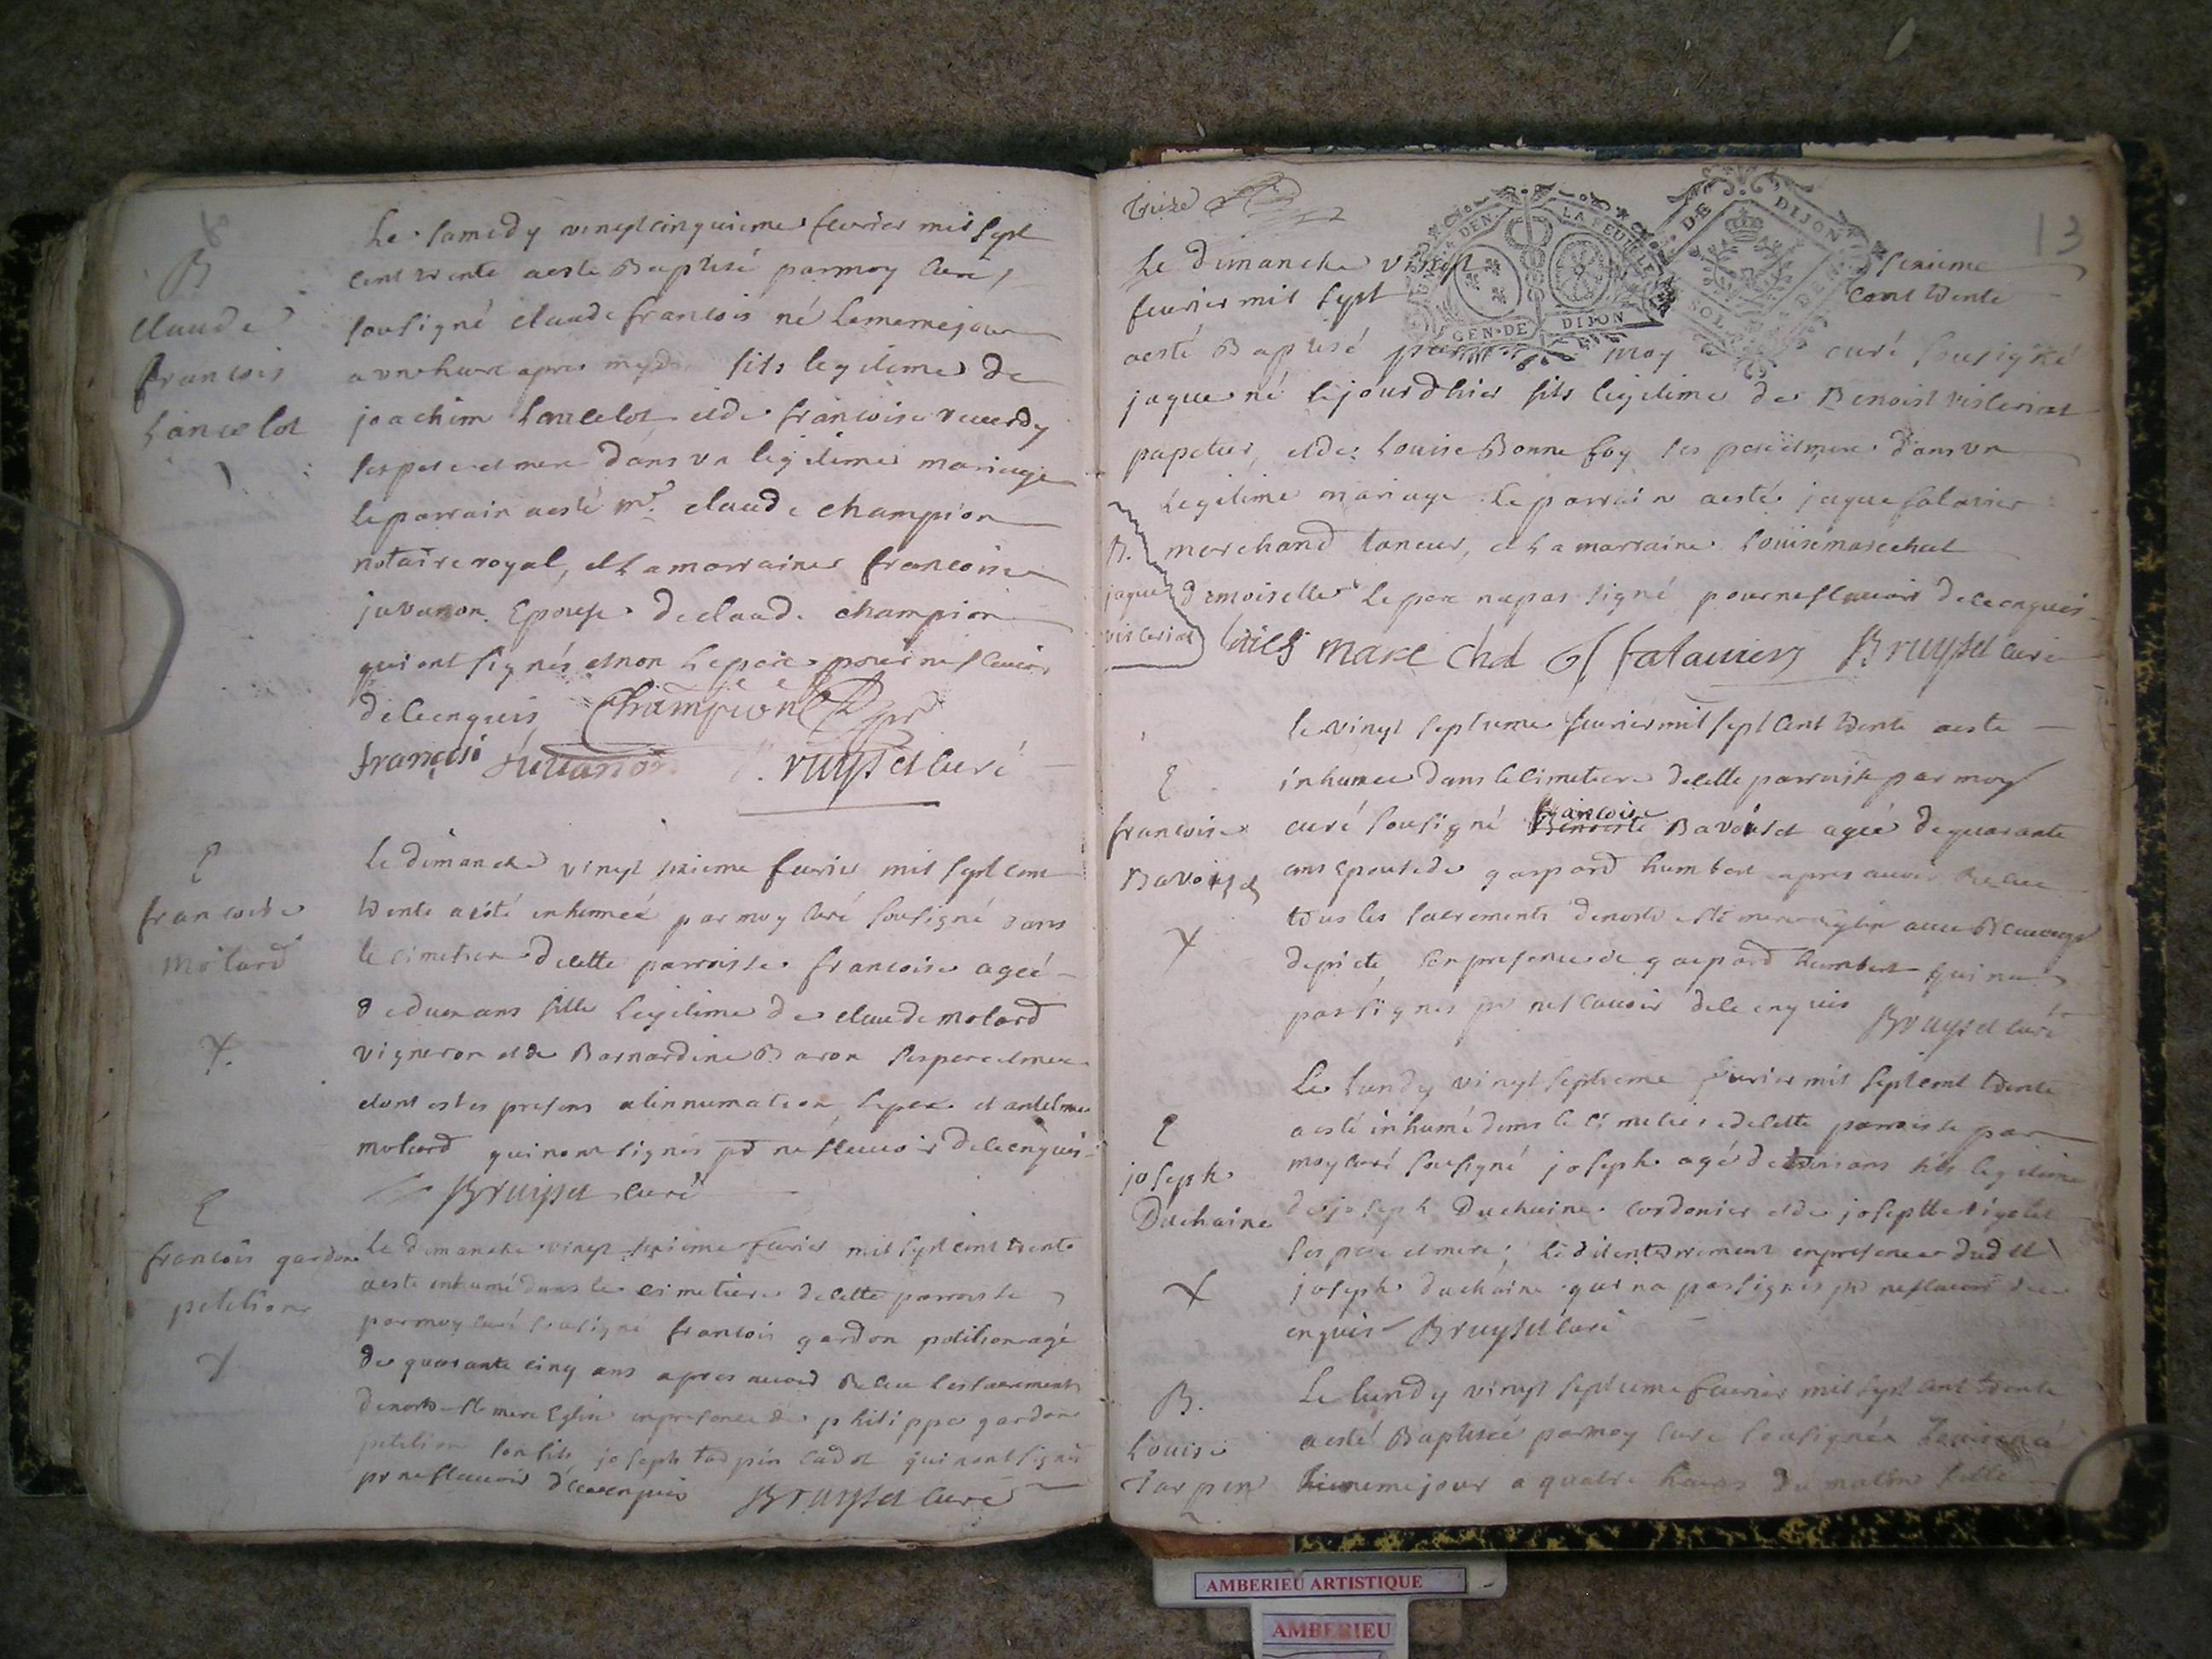 B
claude
francois
Lancelot
Le samedy vingt cinquieme fevrier mil sept
cent trente aeste Baptisé parmoy Curé
sousigné claude francois né Lememejour
a vneheure apres midy fils legitime de
joachim Lancelot etde francoise reverdy
ses pere et mere dans vn legitime mariage
leparrain aesté mr. claude champion
notaire royal, et La marraine francoise
juvanon Epouse declaude champion
qui ont signés etnon Lepere pour ne scavoir
deceenquis Champion
francoise juvanon Bruyset curé
E
francoise
Molard
Le dimanche vingt sixieme fevrier mil sept cent
trente aésté inhumeé par moy Curé sousigné dans
le cimetiere decette parroisse francoise ageé
de deux ans fille Legitime de claude molard
vigneron etde Barnardine Baron ses pere et mere
alinhumation lepere et antelme
molard qui nont signés pr ne scavoir deceenquis
Bruyset curé
E
francois gardon
petition
Le dimanche vingt sixieme fevrier mil sept cent trente
aeste inhumé dans le cimetiere decette parroisse
parmoy curé sousigné francois gardon petition agé
de quarante cinq ans apres avoir Receu les sacrements
denotre ste mere Eglise enpresence de philippe gardon
petition son fils joseph tarpin cadet qui nont signés
pr ne scavoir deceenquis Bruyset curé
treize
13
GEN. DE DIJON
DE DIJON
SOL
Le dimanche vingt sixieme
fevrier mil sept cent trente
aesté Baptisé par moy curé sousigné
jaque né lejourdhier fils legitime de Benoist visleriat
papetier, etde Louise Bonnefoy ses pere et mere dans vn
Legitime mariage Le parrain aesté jaque falavier
marchand taneur, et La marraine Louise marechal
demoiselle Lepere napas signé pour ne scavoir deceenquis
B.
jaque
visleriat
Louise mare chal falavier Bruyset curé
E
francoise
Bavoiset
le vingt septieme fevrier mil sept cent trente aeste
inhumee dans le cimetiere decette parroisse par moy
curé sousigné francoise Bavoiset agée dequarante
ans epousede gaspard humbert apres avoir Receu
tous les sacrements denotre ste mere eglise avec Beaucoup
depieté, en presence de gaspard humbert qui na
pas signés pr ne scavoir deceenquis
Bruyset curé
E
joseph
Duchaine
Le Lundy vingt septieme fevrier mil sept cent trente
aesté inhumé dans le cimetiere decette parroisse par
moy curé sousigné joseph agé de trois ans fils legitime
de joseph Duchaine cordonier etde josephte
ses pere et mere; Ledit enterrement enpresence dudit
joseph duchaine qui na pas signés pr ne scavoir dece
enquis Bruyset curé
B.
Louise
Tarpin
Le lundy vingt septieme fevrier mil sept cent trente
aesté Baptisée parmoy curé sousigné Louise né
Lememejour a quatre heures du matin fille
AMBERIEU ARTISTIQUE
AMBERIEU